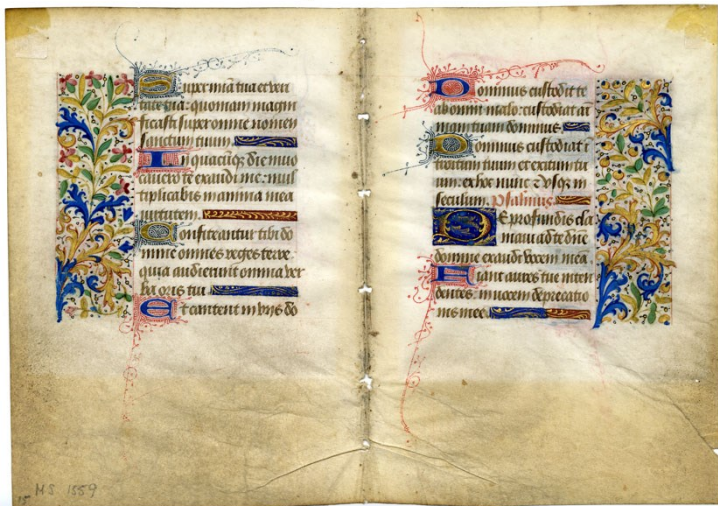 Super mīam tuā et veri
tate tua: quoniam magni
ficasti super omne nomen
sanctum tuum.
In quacūqꝫ die invo
cavero te exaudi me: mul
tiplicabis in anima mea
virtutem.
Confiteantur tibi do
mine omnes reges terre
quia audierunt omnia ver
ba oris tui.
Et cantent in viis do
Dominus custodit te
ab omni malo: custodiat a
mam tuam dominus.
Dominus custodiat i
troitum tuum et exitum tu
um: ex hoc nunc et vsqꝫ in
seculum. Psalmus
De profundis cla
mavi ad te dn̄e
domine exaudi vocem mea
Fiant aures tue inten
dentes: in vocem deprecatio
nis mee.
MS 1559